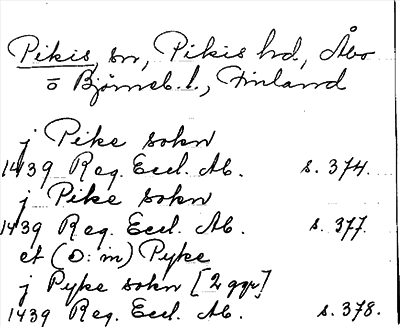 Pikis, sn, Pikis hd, Åbo
o Björneb. l., Finland
j Pike sokn
1439 Reg. Eccl. Ab. s. 374.
j Pike sokn
1439 Reg. Eccl. Ab. s. 377.
et (ɔ: in) Pyke
j Pyke sokn [2 ggr]
1439 Reg. Eccl. Ab. s. 378.